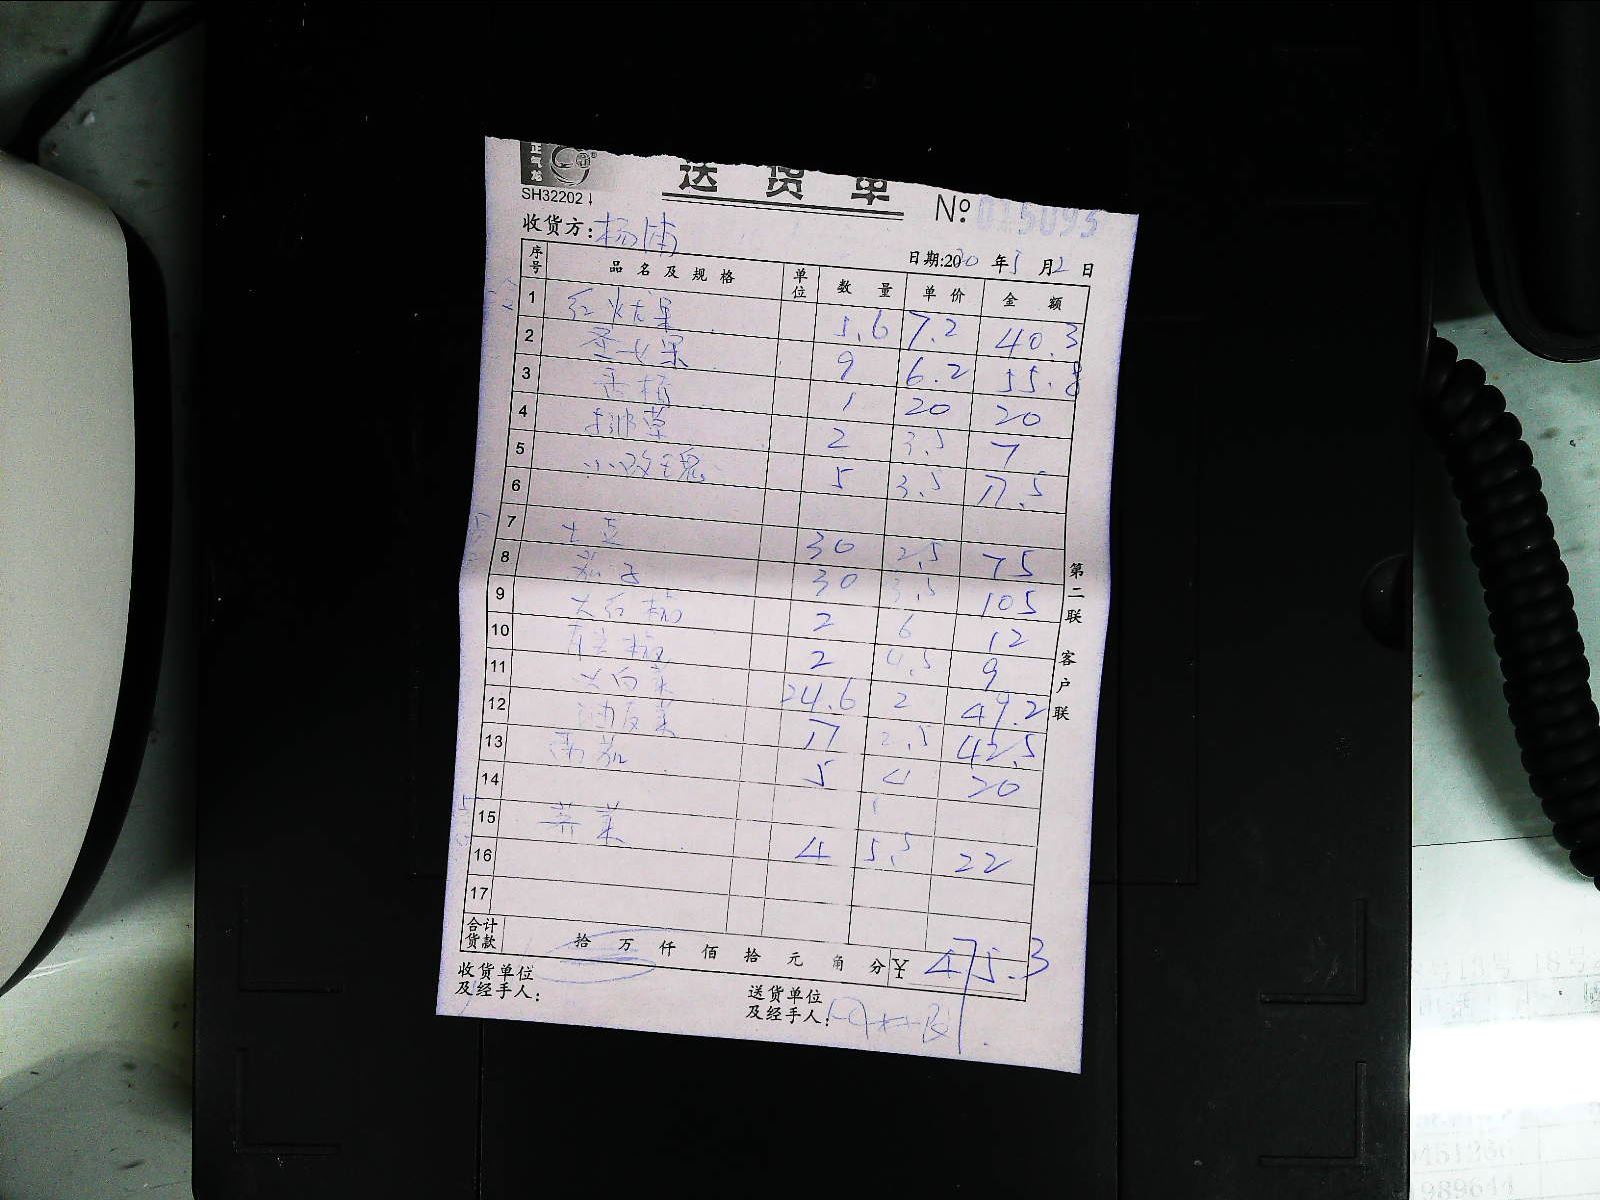 正气龙
送 货 单
SH32202
№ 015093
收货方: 杨浦
日期:2020 年 5 月 2 日
序号 品 名 及 规 格 单位 数 量 单 价 金 额
1 红火龙果 5.6 7.2 40.3
2 圣女果 9 6.2 55.8
3 香梻 1 20 20
4 2 3.5 7
5 小玫瑰 5 3.5 17.5
6
7 土豆 30 2.5 75
8 茄子 30 3.5 105
9 大红椒 2 6 12
10 2 4.5 9
11 大白菜 24.6 2 49.2
12 油麦菜 17 2.5 42.5
13 番茄 5 4 20
14
15 荠菜 4 5.5 22
16
17
合计货款 拾 万 仟 佰 拾 元 角 分 ¥ 475.3
收货单位及经手人:
送货单位及经手人:
第二联 客户联